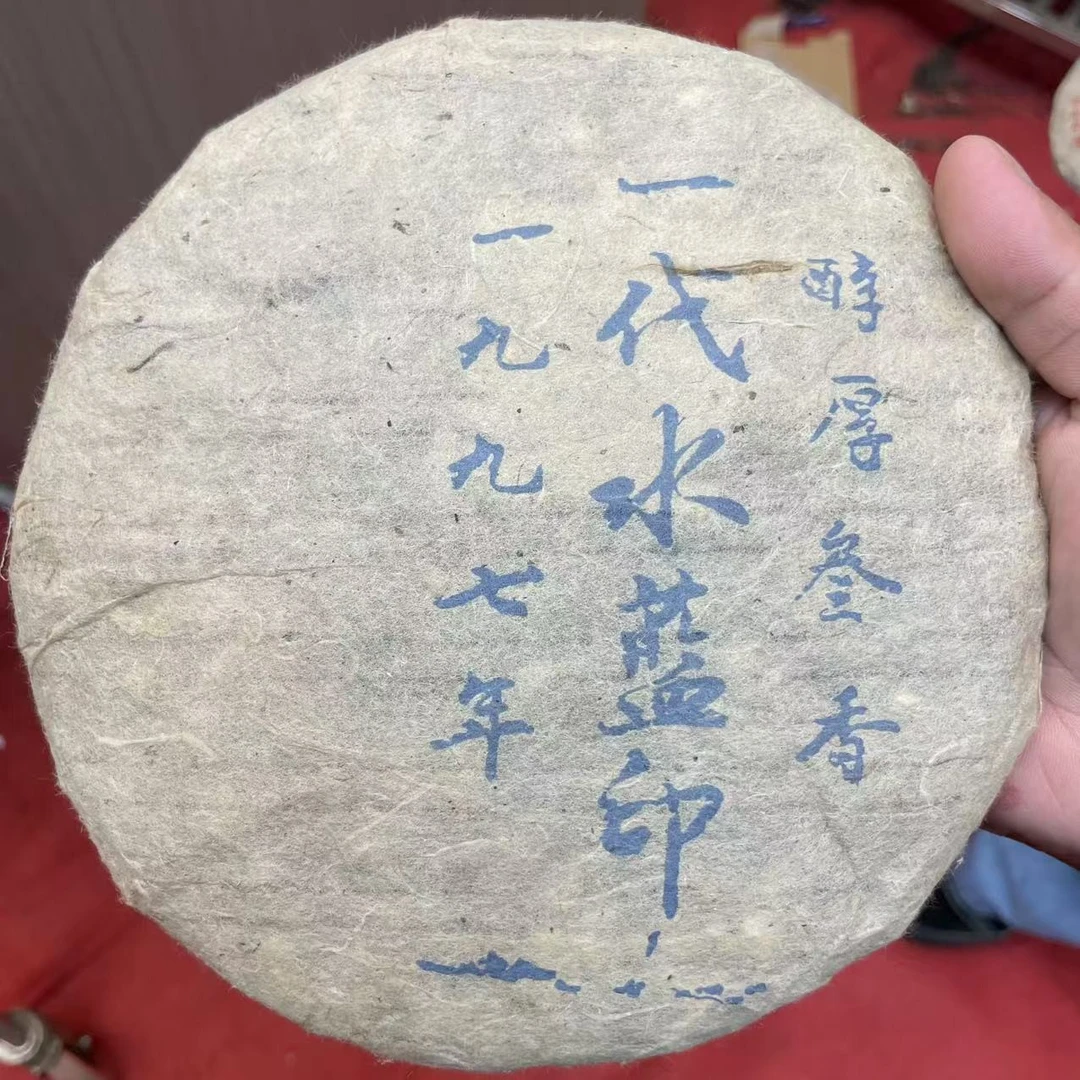 醇厚叄香
一代水藍印
一九九七年